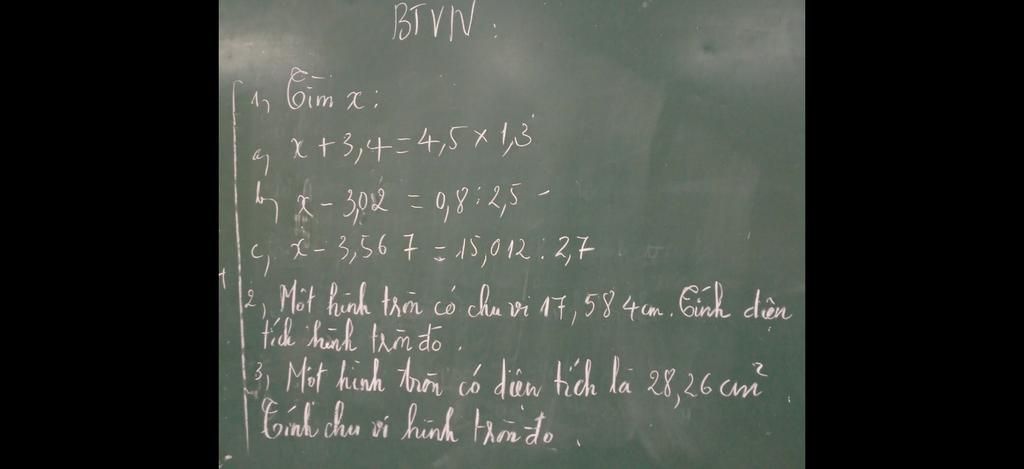 BTVN:
1, Tìm x:
a, x + 3,4 = 4,5 × 1,3
b, x - 3,02 = 0,8 : 2,5 -
c, x - 3,567 = 15,012 : 2,7
2, Một hình tròn có chu vi 17,584 cm. Tính diện
tích hình tròn đó.
3, Một hình tròn có diện tích là 28,26 cm²
Tính chu vi hình tròn đó.